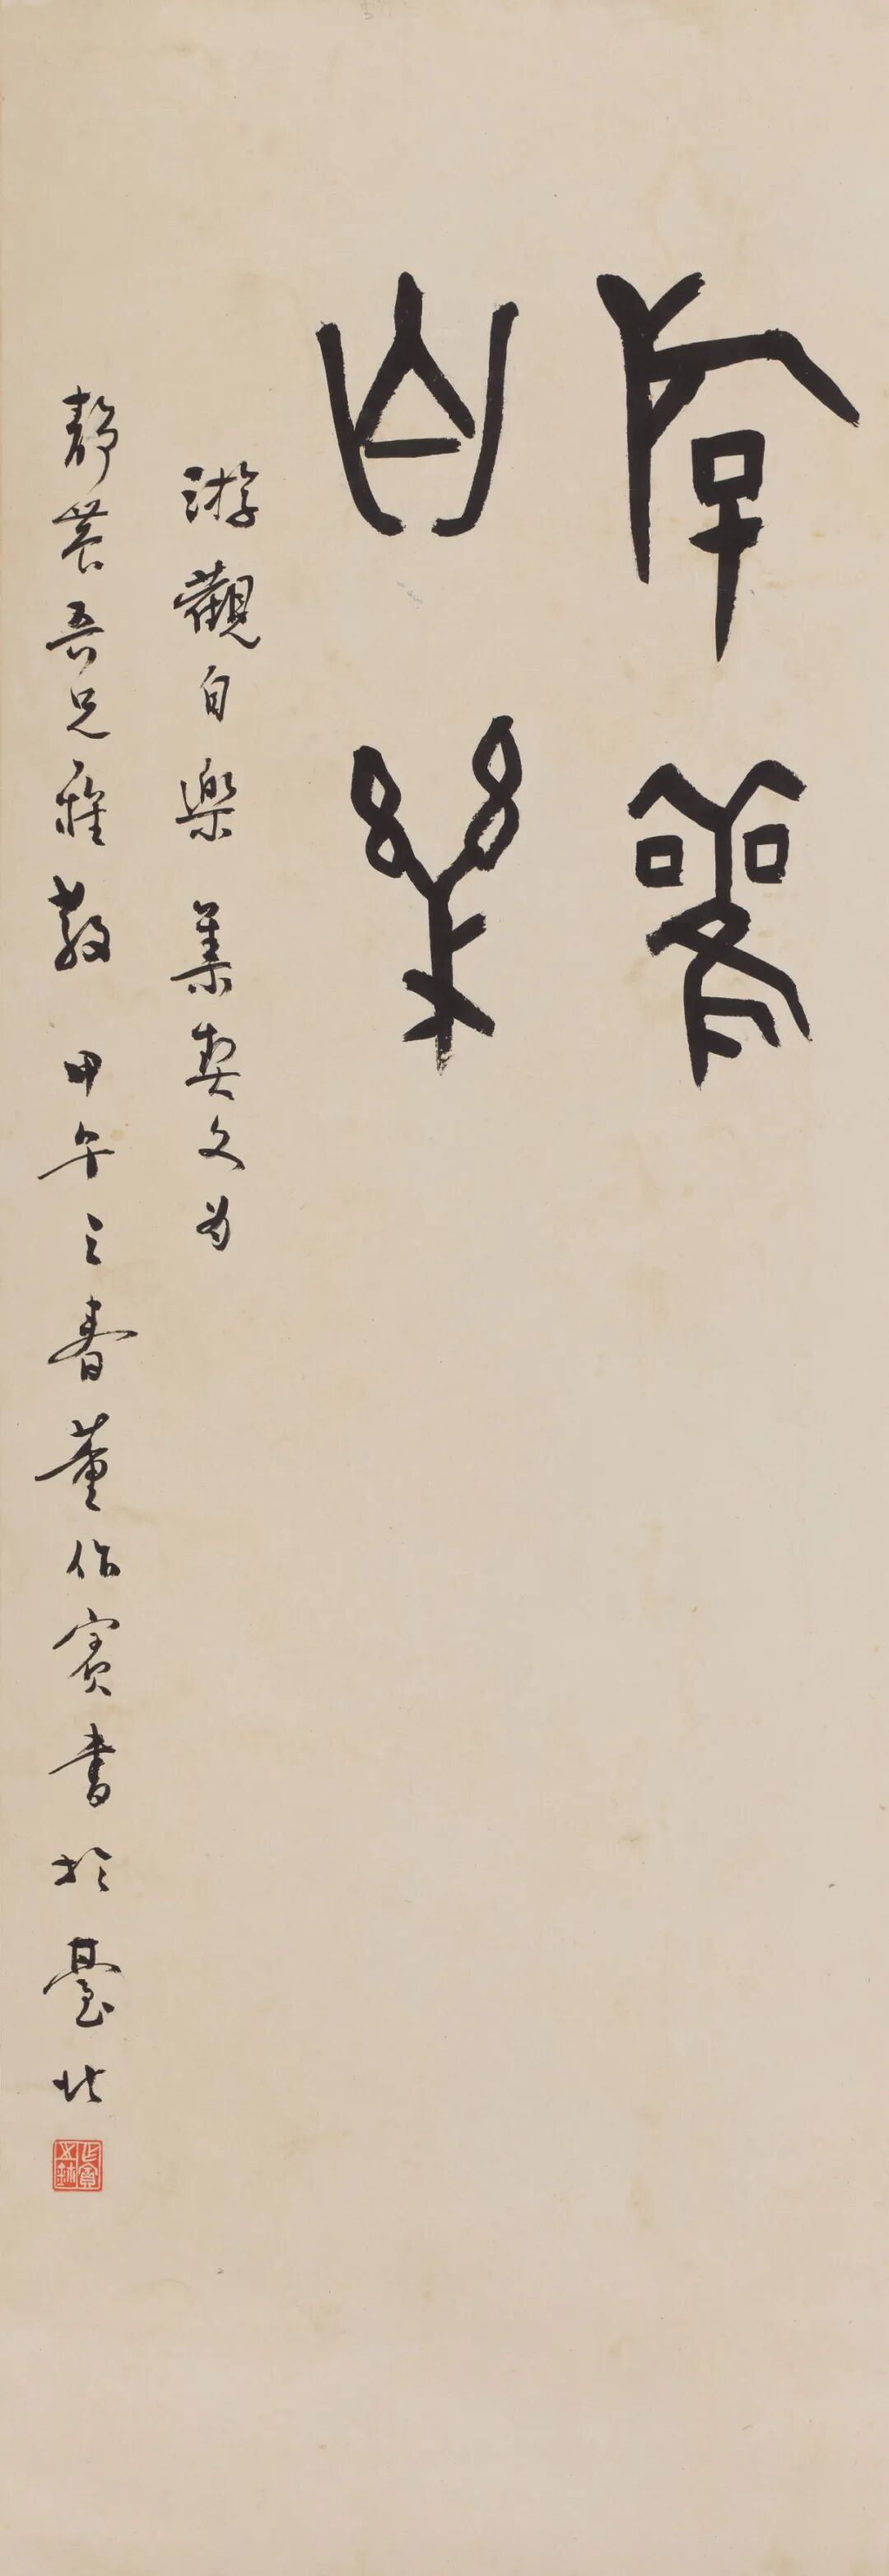 游觀
自樂
游觀自樂 集契文为
靜農吾兄雅教 甲午之春董作賓書於臺北